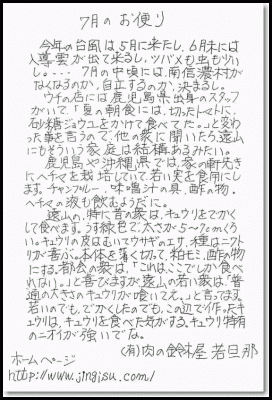 7月のお便り
今年の台風は5月に来たし、6月末には
入導雲が出て来るし、ツバメも虫もヅい
し。--- 7月の中頃には、南信濃村が
なくなるのか、自立するのか、決まるし。
ウチの店には鹿児島県出身のスタッフ
がいて、「夏の朝食には、切ったトマトに、
砂糖ジョウユをかけて食べてた。」と変わ
った事を言うので、他の衆に聞いたら、遠山
にもそういう家庭は結構あるみたい。
鹿児島や沖縄県では、家の軒先き
にヘチマを栽培していて、若い実を食用にし
ます。チャンプルー、味噌汁の具、酢の物。
ヘチマの液も飲むようだに。
遠山の、特に昔の衆は、キュウリをでかく
して食べます。うす緑色で、太さが5~7cmくら
い。キュウリの皮はむいてウサギのエサ、種はニワト
リが喜ぶ。本体を薄く切って、粕モミ、酢の物
にする。都会の衆は、「これはここでしか食べ
れない。」と喜びますが、遠山の若い衆は、「普
通の大きさのキュウリが喰いてえ。」と言ってます。
若いのでも、でかくしたのでも、この辺で作ったキ
ュウリは、キュウリを食べた気がする。キュウリ特有
のニオイが強いでな。
(有)肉の鈴木屋 若旦那
ホームページ
http://www.jingisu.com/